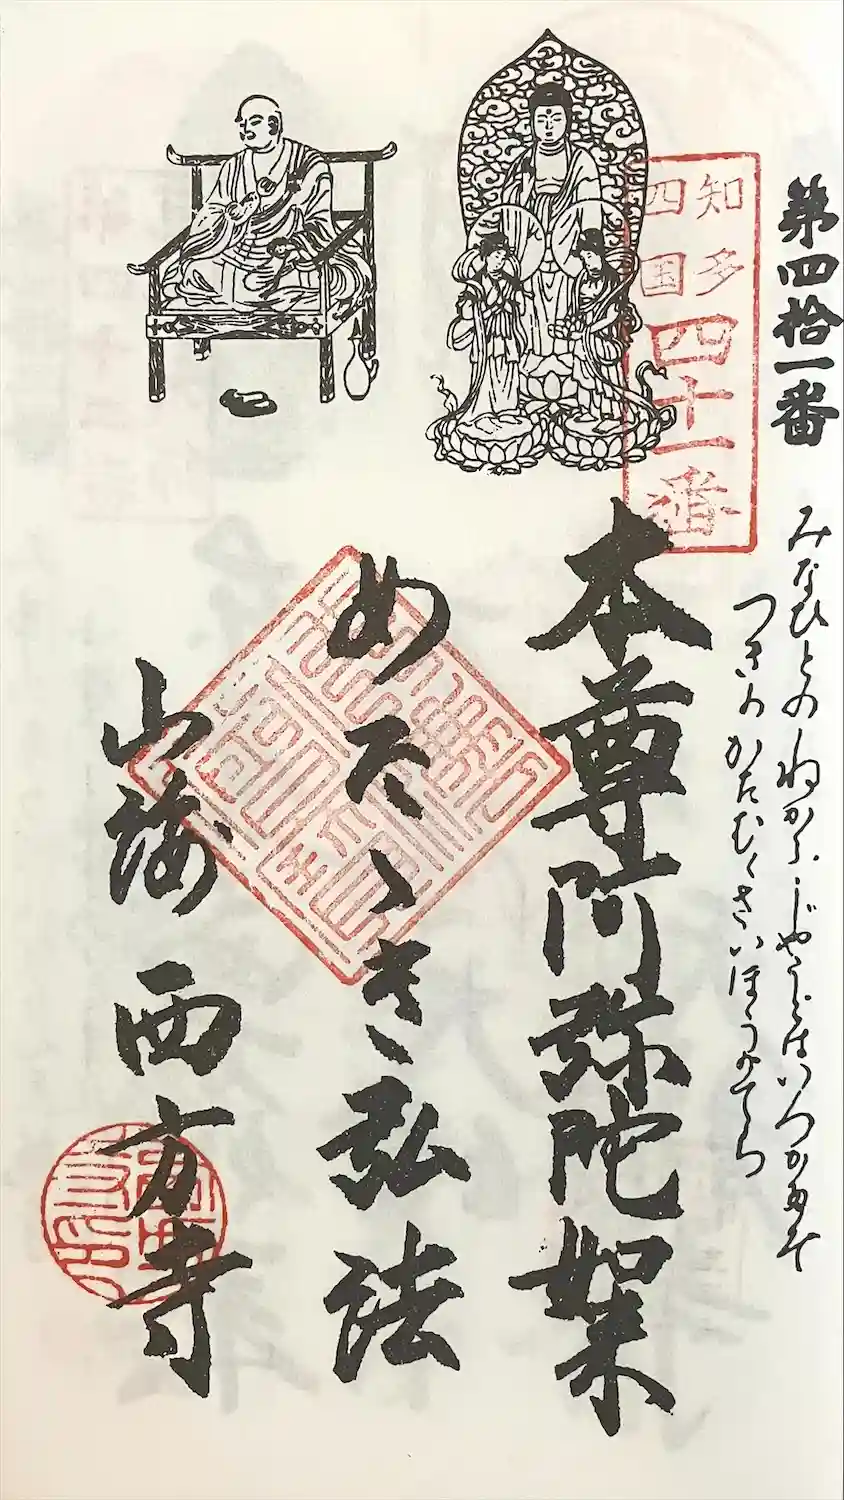 第四拾一番
知多
四国
四十一番
みなひとのねがふじやうどはいつかたぞ
つきのかたむくさいほうのてら
本尊阿弥陀如来
めでたき弘法
山海 西方寺